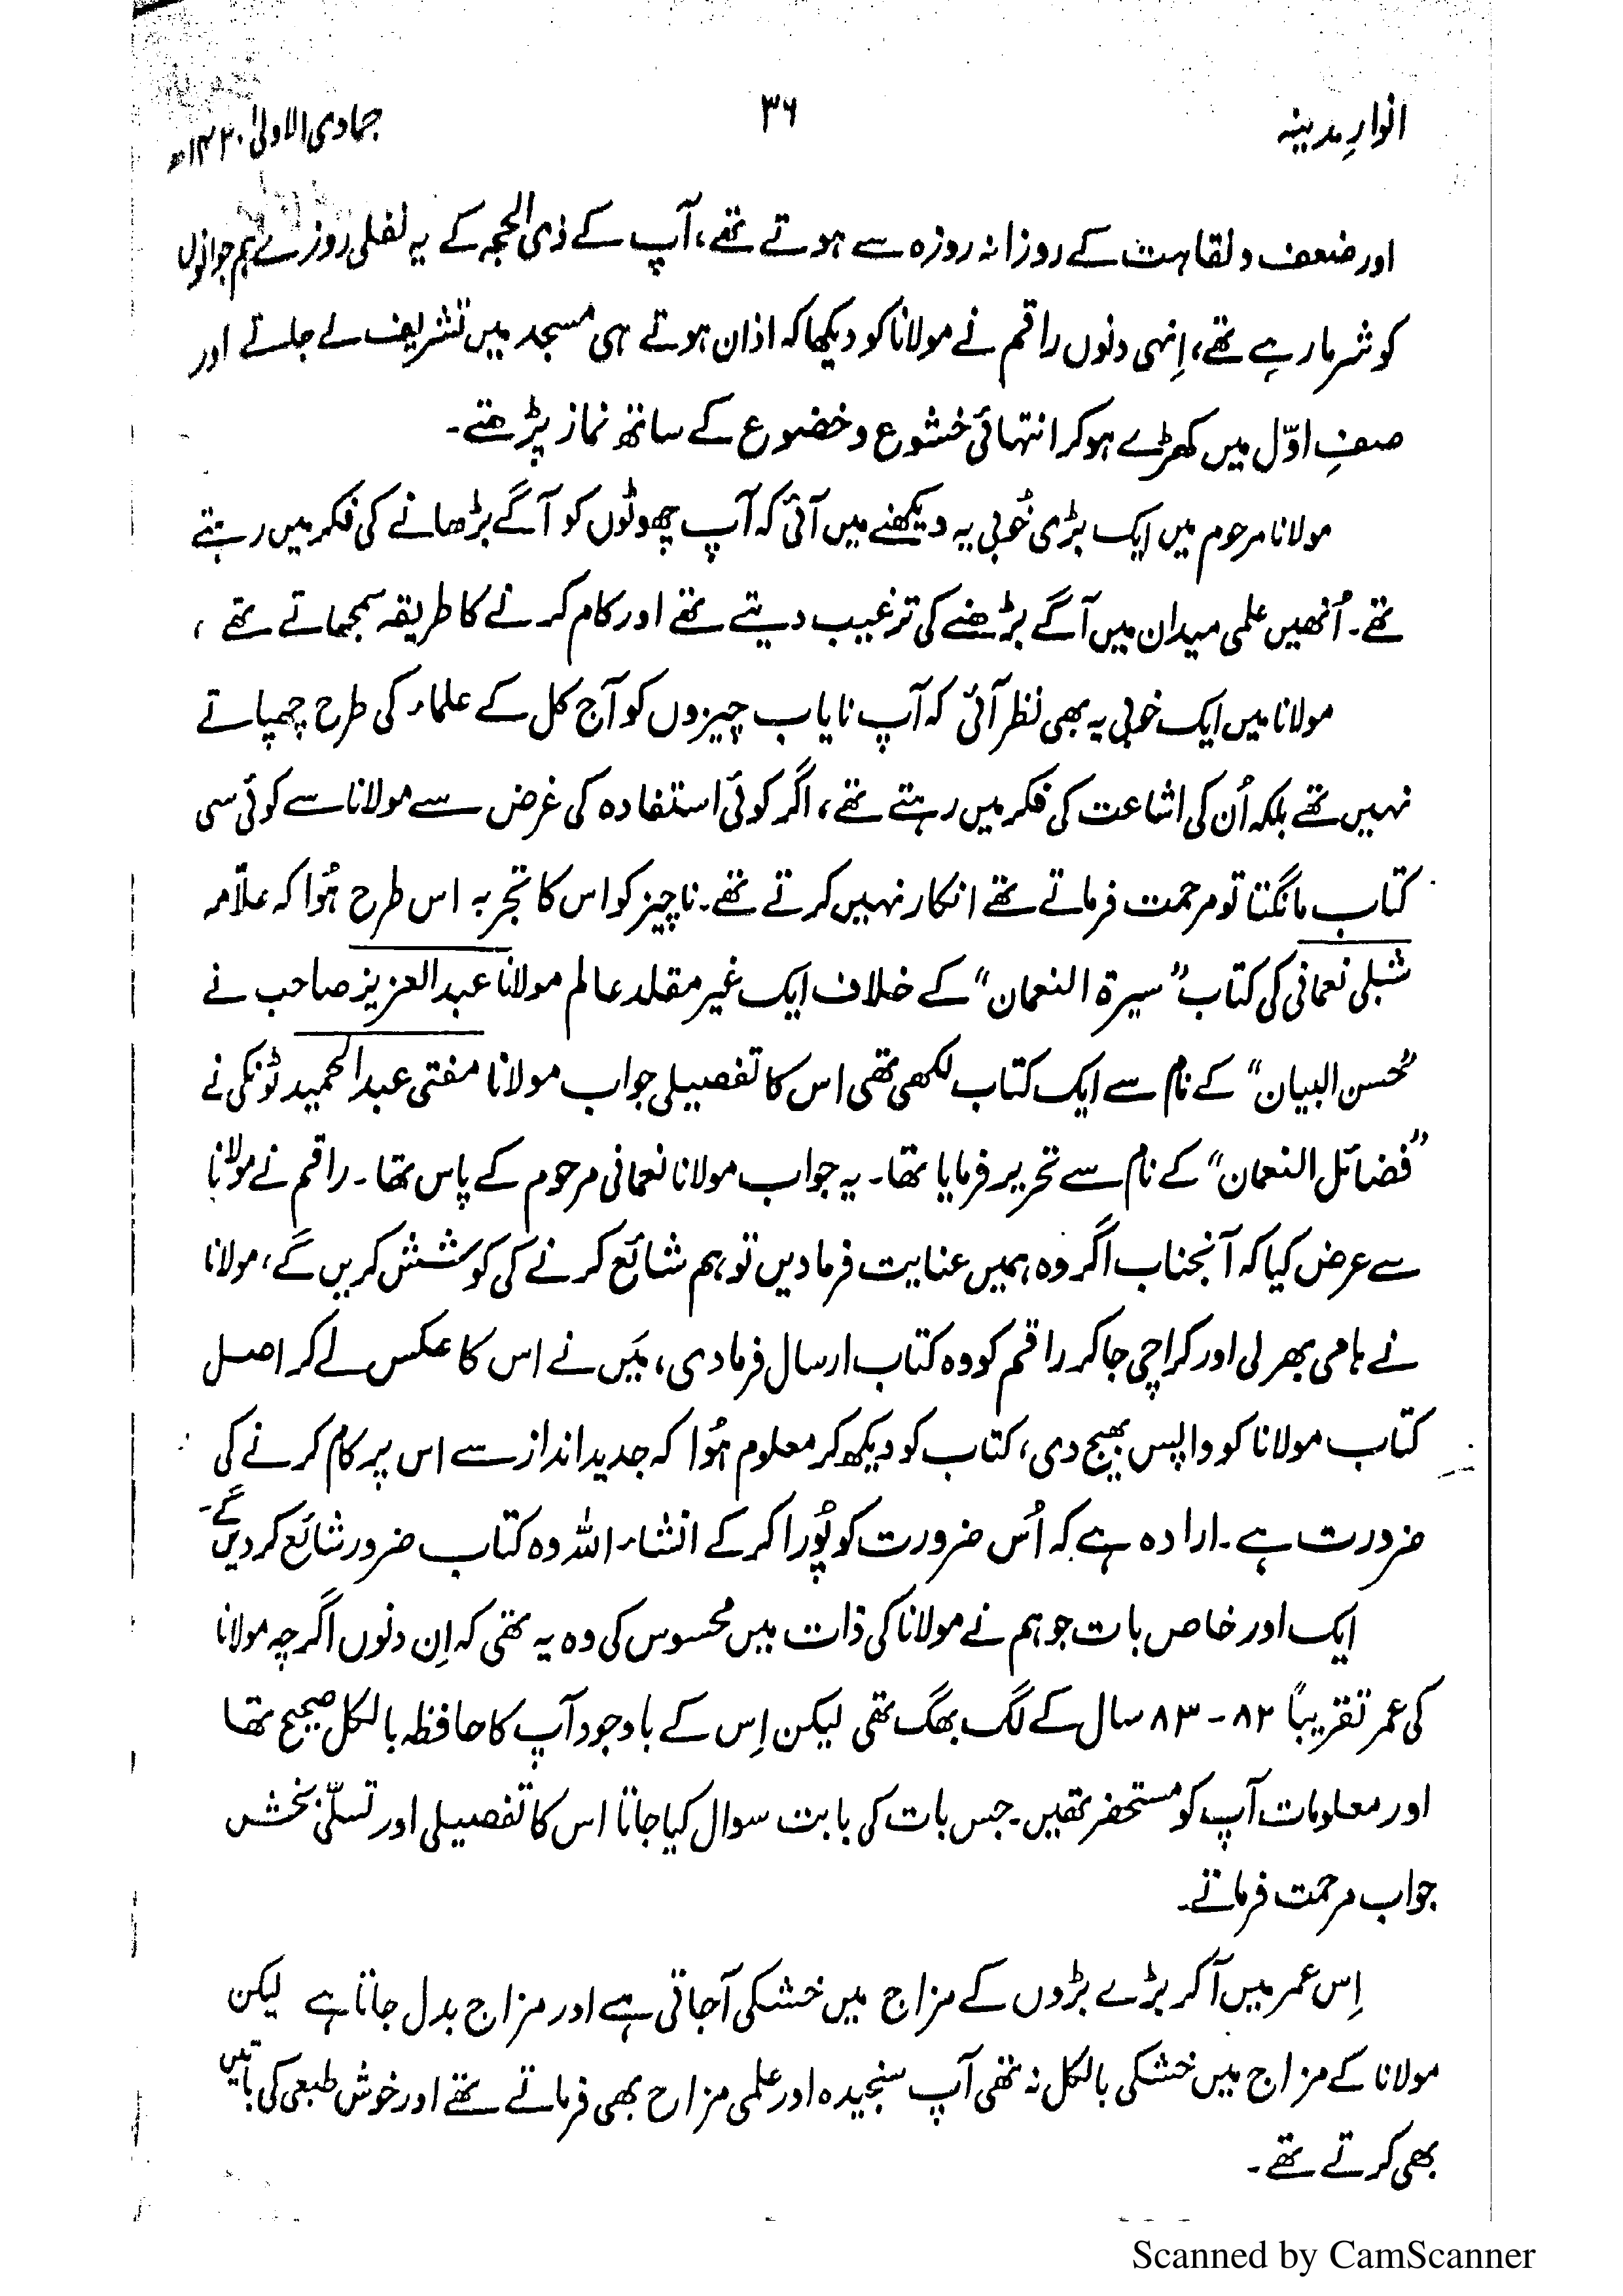 انوارِ مدینہ
۳۶
جمادی الاولیٰ ۱۴۲۰ھ
اور ضعف و نقاہت کے روزانہ روزہ سے ہوتے تھے، آپ کے ذی الحجہ کے یہ نفلی روزے ہم جوانوں
کو شرما رہے تھے، اِنہی دنوں راقم نے مولانا کو دیکھا کہ اذان ہوتے ہی مسجد میں تشریف لے جاتے اور
صفِ اوّل میں کھڑے ہو کر انتہائی خشوع و خضوع کے ساتھ نماز پڑھتے۔
مولانا مرحوم میں ایک بڑی خُوبی یہ دیکھنے میں آئی کہ آپ چھوٹوں کو آگے بڑھانے کی فکر میں رہتے
تھے۔ اُنھیں علمی میدان میں آگے بڑھنے کی ترغیب دیتے تھے اور کام کرنے کا طریقہ سمجھاتے تھے ،
مولانا میں ایک خوبی یہ بھی نظر آئی کہ آپ نایاب چیزوں کو آج کل کے علماء کی طرح چھپاتے
نہیں تھے بلکہ اُن کی اشاعت کی فکر میں رہتے تھے، اگر کوئی استفادہ کی غرض سے مولانا سے کوئی سی
کتاب مانگتا تو مرحمت فرماتے تھے انکار نہیں کرتے تھے۔ ناچیز کو اس کا تجربہ اس طرح ہُوا کہ علاّمہ
شبلی نعمانی کی کتاب "سیرۃ النعمان" کے خلاف ایک غیر مقلد عالم مولانا عبدالعزیز صاحب نے
"حُسن البیان" کے نام سے ایک کتاب لکھی تھی اس کا تفصیلی جواب مولانا مفتی عبدالحمید ٹونکی نے
"فضائل النعمان" کے نام سے تحریر فرمایا تھا۔ یہ جواب مولانا نعمانی مرحوم کے پاس تھا۔ راقم نے مولانا
سے عرض کیا کہ آنجناب اگر وہ ہمیں عنایت فرما دیں تو ہم شائع کرنے کی کوشش کریں گے، مولانا
نے ہامی بھر لی اور کراچی جا کر راقم کو وہ کتاب ارسال فرما دی، مَیں نے اس کا عکس لے کر اصل
کتاب مولانا کو واپس بھیج دی، کتاب کو دیکھ کر معلوم ہُوا کہ جدید انداز سے اس پر کام کرنے کی
ضرورت ہے۔ ارادہ ہے کہ اُس ضرورت کو پُورا کر کے انشاء اللہ وہ کتاب ضرور شائع کر دیں گے۔
ایک اور خاص بات جو ہم نے مولانا کی ذات میں محسوس کی وہ یہ تھی کہ اِن دنوں اگرچہ مولانا
کی عمر تقریباً ۸۲ - ۸۳ سال کے لگ بھگ تھی لیکن اِس کے باوجود آپ کا حافظہ بالکل صحیح تھا
اور معلومات آپ کو مستحضر تھیں۔ جس بات کی بابت سوال کیا جاتا اس کا تفصیلی اور تسلّی بخش
جواب مرحمت فرماتے۔
اِس عمر میں آ کر بڑے بڑوں کے مزاج میں خشکی آ جاتی ہے اور مزاج بدل جاتا ہے لیکن
مولانا کے مزاج میں خشکی بالکل نہ تھی آپ سنجیدہ اور علمی مزاح بھی فرماتے تھے اور خوش طبعی کی باتیں
بھی کرتے تھے۔
Scanned by CamScanner